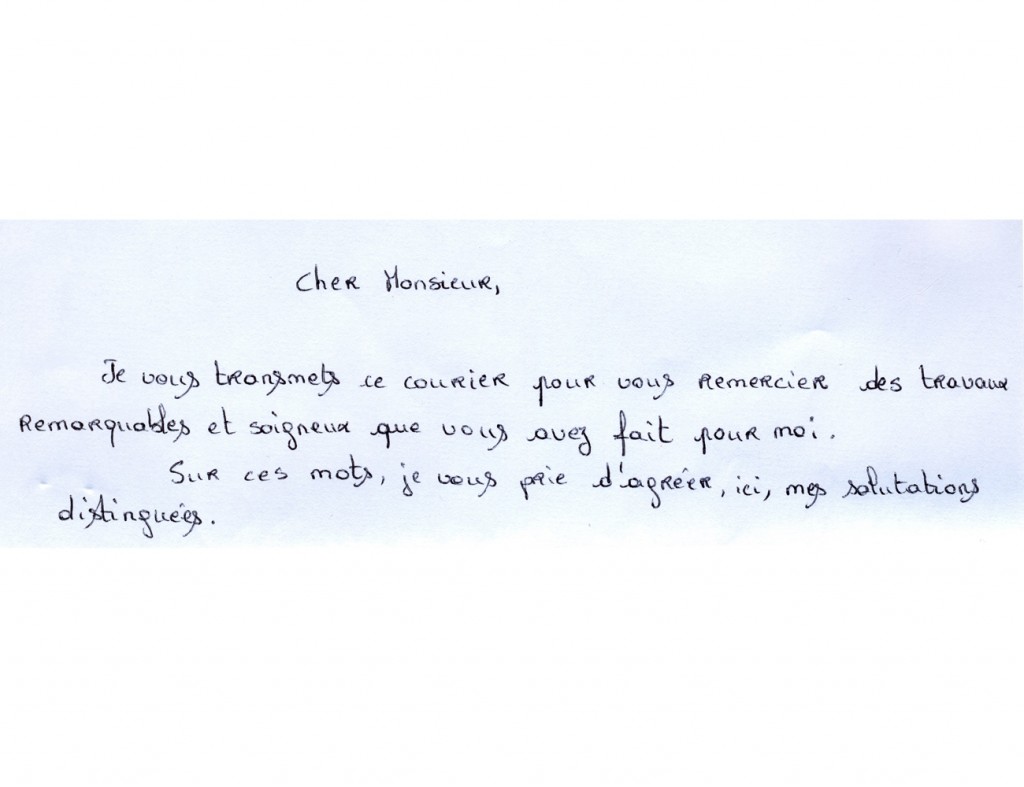 Cher Monsieur,
Je vous transmets ce courier pour vous remercier des travaux
remarquables et soigneux que vous avez fait pour moi.
Sur ces mots, je vous prie d'agréer, ici, mes salutations
distinguées.